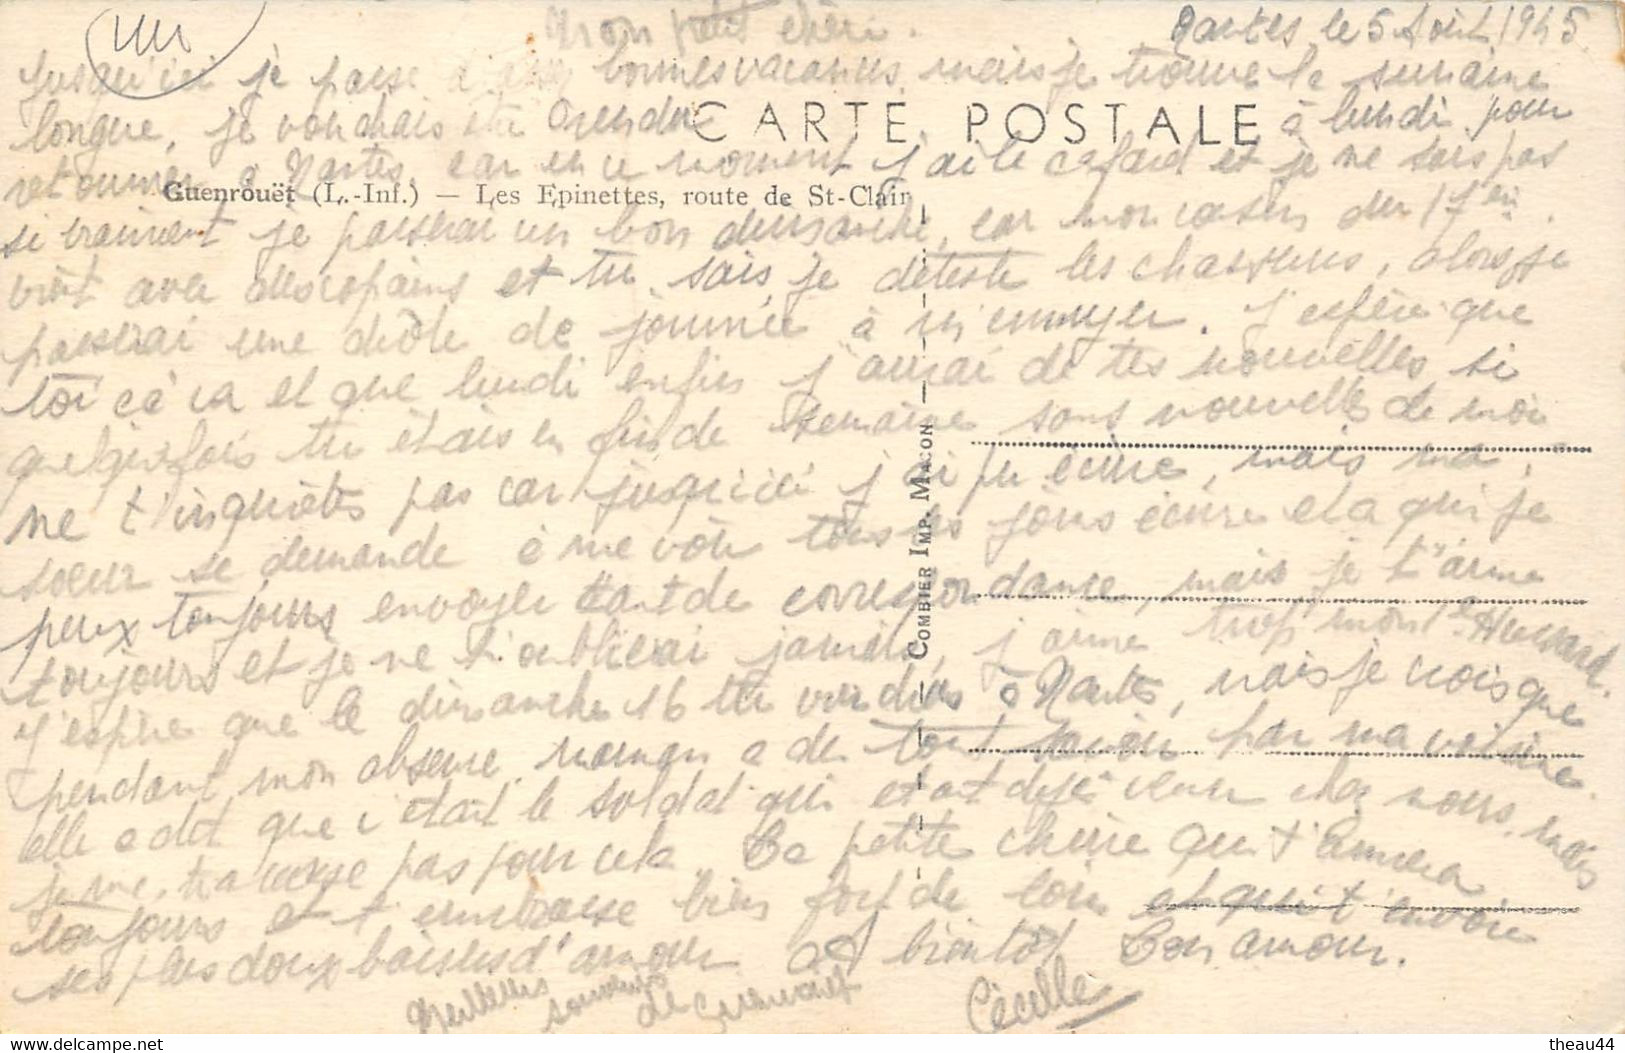 Nantes le 5 Août 1945
Mon petit chéri.
Jusqu'ici je passe d'assez bonnes vacances, mais je trouve la semaine
longue, je voudrais être rendue à lundi pour
CARTE POSTALE
retourner à Nantes, car en ce moment j'ai le cafard et je ne sais pas
Guenrouët (L.-Inf.) — Les Epinettes, route de St-Clair
si vraiment je passerai un bon dimanche, car mon cousin du
vient avec des copains et tu sais, je déteste les chasseurs, alors je
passerai une drôle de journée à m'ennuyer. J'espère que
toi cà va et que lundi enfin j'aurai de tes nouvelles, si
quelquefois tu étais en fin de semaine sans nouvelles de moi
ne t'inquiètes pas car jusqu'ici j'ai pu écrire, mais ma
soeur se demande à me voir tous les jours écrire et a qui je
peux toujours envoyer tant de correspondance, mais je t'aime
toujours et je ne t'oublierai jamais, j'aime trop mon Hussard.
J'espère que le dimanche 16 tu viendras à Nantes, mais je crois que
pendant mon absence maman a du tout savoir par ma voisine
elle a dit que c'était le soldat qui etait déjà venu chez nous, mais
je me tracasse pas pour cela. Ta petite chérie qui t'aimera
toujours et t'embrasse bien fort de loin et qui t'envoie
ses plus doux baisers d'amour a bientôt Ton amour.
Meilleurs souvenirs de Guenrouet
Cécille
COMBIER IMP. MACON
theau44